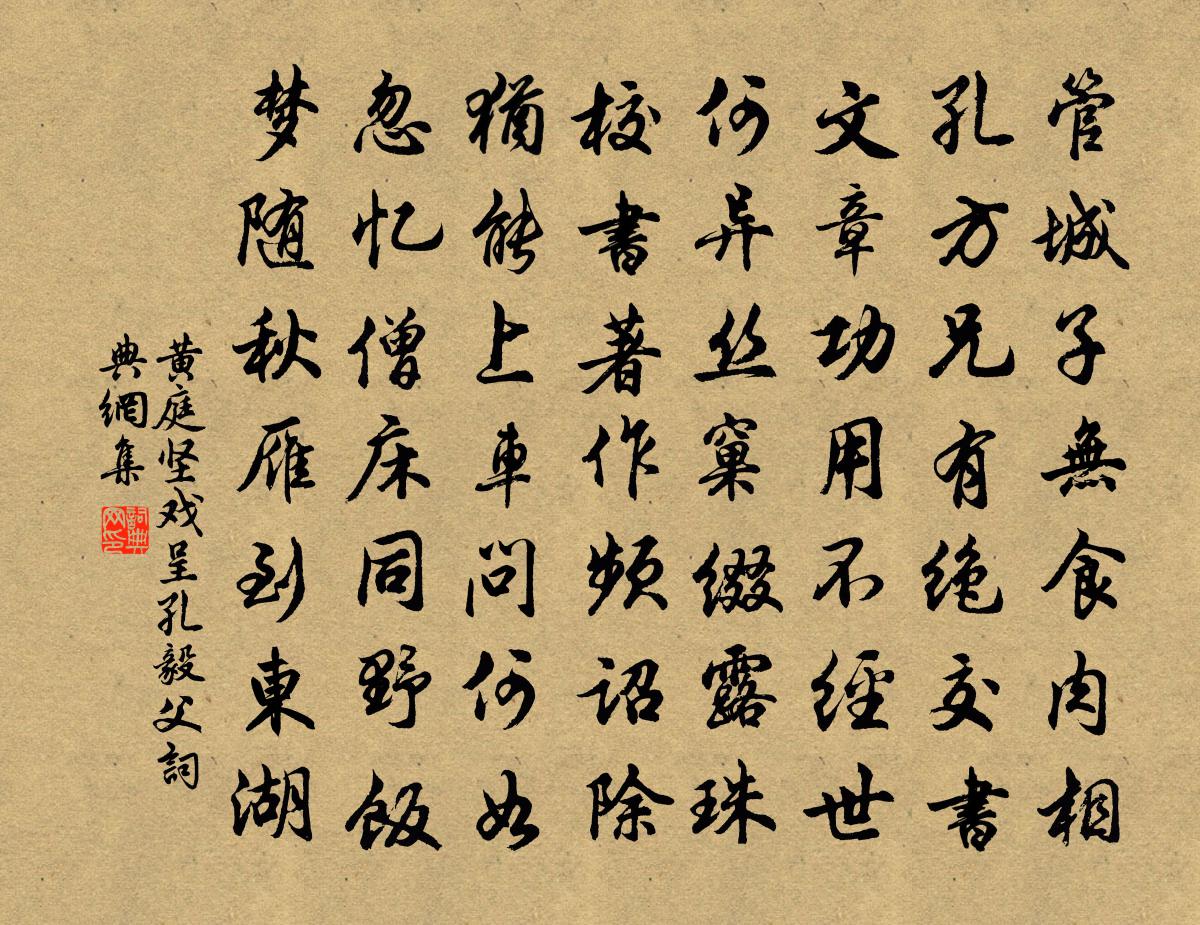 管城子無食肉相
孔方兄有绝交書
文章功用不經世
何异丝窠缀露珠
校書著作頻詔除
猶能上車問何如
忽忆僧床同野飯
梦随秋雁到東湖
黄庭坚戏呈孔毅父詞
典網集
詞典
网印